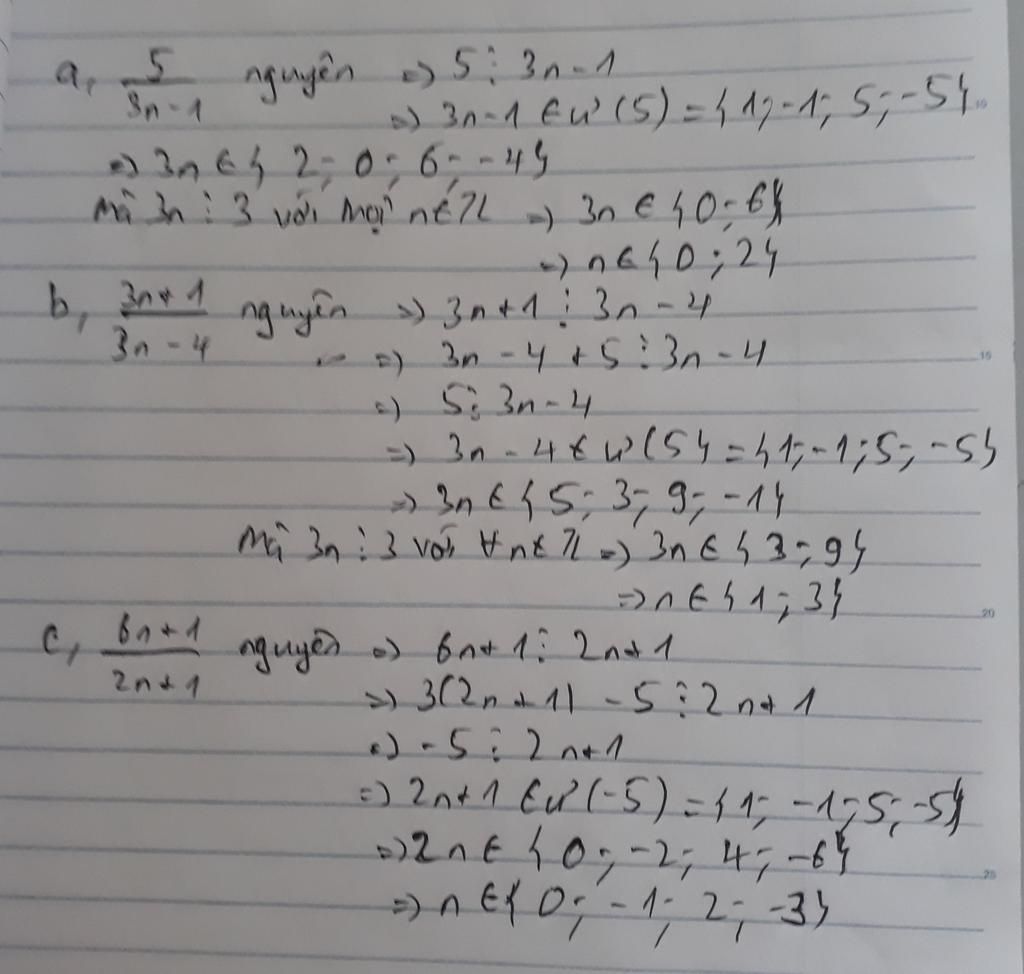 a, 5/(3n-1) nguyên => 5 ⋮ 3n-1
=> 3n-1 ∈ Ư(5) = {1; -1; 5; -5}
=> 3n ∈ { 2; 0; 6; -4}
Mà 3n ⋮ 3 với mọi n ∈ Z => 3n ∈ {0; 6}
=> n ∈ {0; 2}
b, (3n+1)/(3n-4) nguyên => 3n+1 ⋮ 3n-4
=> 3n-4+5 ⋮ 3n-4
=> 5 ⋮ 3n-4
=> 3n-4 ∈ Ư(5} = {1; -1; 5; -5}
=> 3n ∈ {5; 3; 9; -1}
Mà 3n ⋮ 3 với ∀n ∈ Z => 3n ∈ {3; 9}
=> n ∈ {1; 3}
c, (6n+1)/(2n+1) nguyên => 6n+1 ⋮ 2n+1
=> 3(2n+1) -5 ⋮ 2n+1
=> -5 ⋮ 2n+1
=> 2n+1 ∈ Ư(-5) = {1; -1; 5; -5}
=> 2n ∈ {0; -2; 4; -6}
=> n ∈ {0; -1; 2; -3}